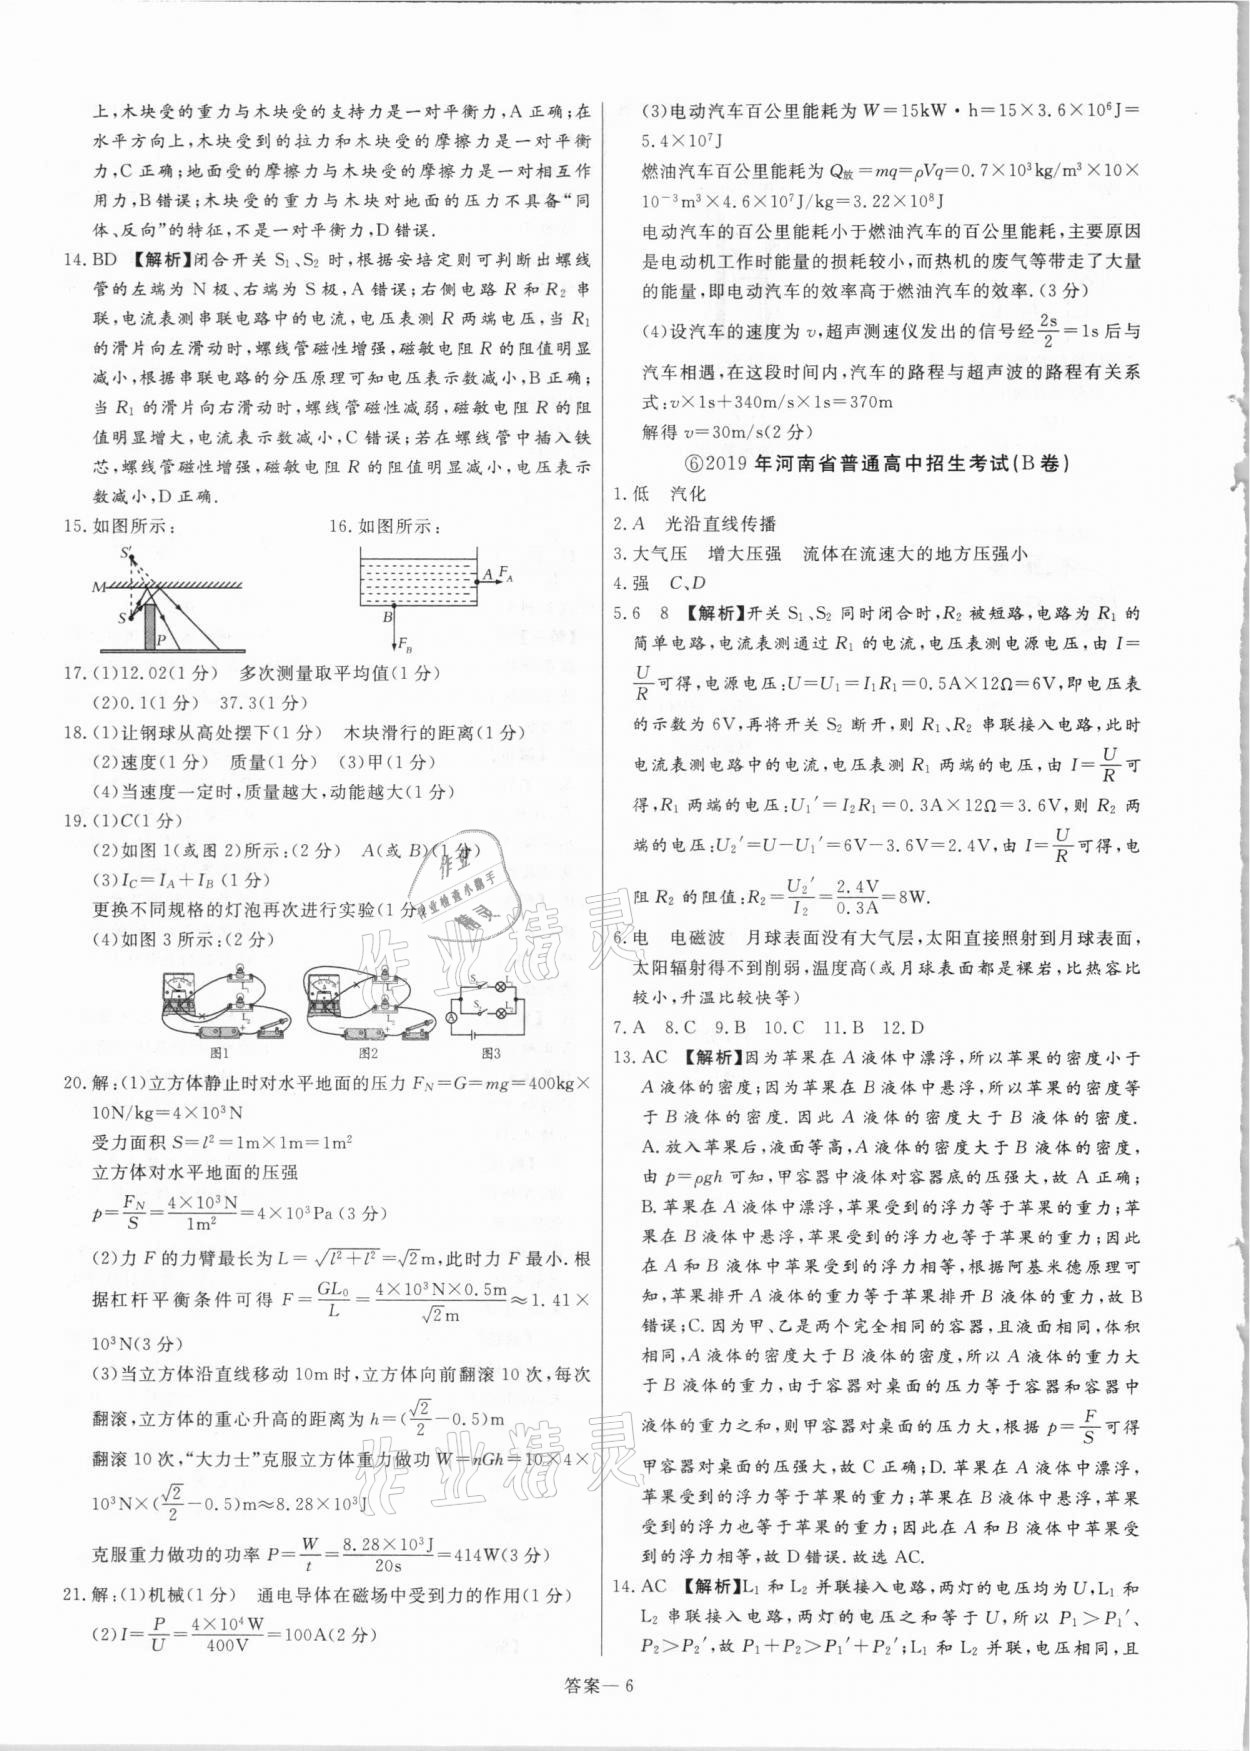 上,木块受的重力与木块受的支持力是一对平衡力,A正确;在
水平方向上,木块受到的拉力和木块受的摩擦力是一对平衡
力,C正确;地面受的摩擦力与木块受的摩擦力是一对相互作
用力,B错误;木块受的重力与木块对地面的压力不具备“同
体、反向”的特征,不是一对平衡力,D错误.
14.BD 【解析】闭合开关S₁、S₂时,根据安培定则可判断出螺线
管的左端为N极、右端为S极,A错误;右侧电路R和R₂串
联,电流表测串联电路中的电流,电压表测R两端电压,当R₁
的滑片向左滑动时,螺线管磁性增强,磁敏电阻R的阻值明显
减小,根据串联电路的分压原理可知电压表示数减小,B正确;
当R₁的滑片向右滑动时,螺线管磁性减弱,磁敏电阻R的阻
值明显增大,电流表示数减小,C错误;若在螺线管中插入铁
芯,螺线管磁性增强,磁敏电阻R的阻值明显减小,电压表示
数减小,D正确.
15.如图所示: 16.如图所示:
S′
M
S
P
A
F_A
B
F_B
17.(1)12.02(1分) 多次测量取平均值(1分)
(2)0.1(1分) 37.3(1分)
18.(1)让钢球从高处摆下(1分) 木块滑行的距离(1分)
(2)速度(1分) 质量(1分) (3)甲(1分)
(4)当速度一定时,质量越大,动能越大(1分)
19.(1)C(1分)
(2)如图1(或图2)所示:(2分) A(或B)(1分)
(3)I_C=I_A+I_B(1分)
更换不同规格的灯泡再次进行实验(1分
(4)如图3所示:(2分)
L₁
L₂
L₁
L₂
S₁
L₁
S₂
L₂
A
图1 图2 图3
20.解:(1)立方体静止时对水平地面的压力F_N=G=mg=400kg×
10N/kg=4×10³N
受力面积S=l²=1m×1m=1m²
立方体对水平地面的压强
p=F_N/S=4×10³N/1m²=4×10³Pa(3分)
(2)力F的力臂最长为L=√(l²+l²)=√2m,此时力F最小.根
据杠杆平衡条件可得F=GL₀/L=4×10³N×0.5m/√2m≈1.41×
10³N(3分)
(3)当立方体沿直线移动10m时,立方体向前翻滚10次,每次
翻滚,立方体的重心升高的距离为h=(√2/2-0.5)m
翻滚10次,“大力士”克服立方体重力做功W=nGh=10×4×
10³N×(√2/2-0.5)m≈8.28×10³J
克服重力做功的功率P=W/t=8.28×10³J/20s=414W(3分)
21.解:(1)机械(1分) 通电导体在磁场中受到力的作用(1分)
(2)I=P/U=4×10⁴W/400V=100A(2分)
(3)电动汽车百公里能耗为W=15kW·h=15×3.6×10⁶J=
5.4×10⁷J
燃油汽车百公里能耗为Q放=mq=ρVq=0.7×10³kg/m³×10×
10⁻³m³×4.6×10⁷J/kg=3.22×10⁸J
电动汽车的百公里能耗小于燃油汽车的百公里能耗,主要原因
是电动机工作时能量的损耗较小,而热机的废气等带走了大量
的能量,即电动汽车的效率高于燃油汽车的效率.(3分)
(4)设汽车的速度为v,超声测速仪发出的信号经2s/2=1s后与
汽车相遇,在这段时间内,汽车的路程与超声波的路程有关系
式:v×1s+340m/s×1s=370m
解得v=30m/s(2分)
⑥2019年河南省普通高中招生考试(B卷)
1.低 汽化
2.A 光沿直线传播
3.大气压 增大压强 流体在流速大的地方压强小
4.强 C、D
5.6 8 【解析】开关S₁、S₂同时闭合时,R₂被短路,电路为R₁的
简单电路,电流表测通过R₁的电流,电压表测电源电压,由I=
U/R可得,电源电压:U=U₁=I₁R₁=0.5A×12Ω=6V,即电压表
的示数为6V,再将开关S₂断开,则R₁、R₂串联接入电路,此时
电流表测电路中的电流,电压表测R₁两端的电压,由I=U/R可
得,R₁两端的电压:U₁′=I₂R₁=0.3A×12Ω=3.6V,则R₂两
端的电压:U₂′=U-U₁′=6V-3.6V=2.4V,由I=U/R可得,电
阻R₂的阻值:R₂=U₂′/I₂=2.4V/0.3A=8W.
6.电 电磁波 月球表面没有大气层,太阳直接照射到月球表面,
太阳辐射得不到削弱,温度高(或月球表面都是裸岩,比热容比
较小,升温比较快等)
7.A 8.C 9.B 10.C 11.B 12.D
13.AC 【解析】因为苹果在A液体中漂浮,所以苹果的密度小于
A液体的密度;因为苹果在B液体中悬浮,所以苹果的密度等
于B液体的密度.因此A液体的密度大于B液体的密度.
A.放入苹果后,液面等高,A液体的密度大于B液体的密度,
由p=ρgh可知,甲容器中液体对容器底的压强大,故A正确;
B.苹果在A液体中漂浮,苹果受到的浮力等于苹果的重力;苹
果在B液体中悬浮,苹果受到的浮力也等于苹果的重力;因此
在A和B液体中苹果受到的浮力相等,根据阿基米德原理可
知,苹果排开A液体的重力等于苹果排开B液体的重力,故B
错误;C.因为甲、乙是两个完全相同的容器,且液面相同,体积
相同,A液体的密度大于B液体的密度,所以A液体的重力大
于B液体的重力,由于容器对桌面的压力等于容器和容器中
液体的重力之和,则甲容器对桌面的压力大,根据p=F/S可得
甲容器对桌面的压强大,故C正确;D.苹果在A液体中漂浮,
苹果受到的浮力等于苹果的重力;苹果在B液体中悬浮,苹果
受到的浮力也等于苹果的重力;因此在A和B液体中苹果受
到的浮力相等,故D错误.故选AC.
14.AC 【解析】L₁和L₂并联接入电路,两灯的电压均为U,L₁和
L₂串联接入电路,两灯的电压之和等于U,所以P₁>P₁′、
P₂>P₂′,故P₁+P₂>P₁′+P₂′;L₁和L₂并联,电压相同,且
答案—6
作业
作业检查小助手
精灵
作业精灵
作业精灵